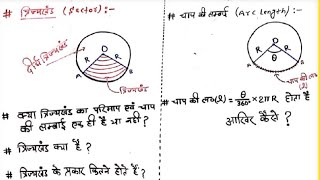 # त्रिज्यखंड (Sector):-
O
R
R
दीर्घ त्रिज्यखंड
त्रिज्यखंड
# क्या त्रिज्यखंड का परिमाप एवं चाप
की लम्बाई एक ही है या नहीं ?
# त्रिज्यखंड क्या है ?
# त्रिज्यखंड के प्रकार कितने होते हैं ?
# चाप की लम्बाई (Arc Length):-
O
R
θ
R
चाप की लम्बाई
(l)
# चाप की लम्बाई(l) = θ/360° × 2πR होता है
आखिर कैसे ?